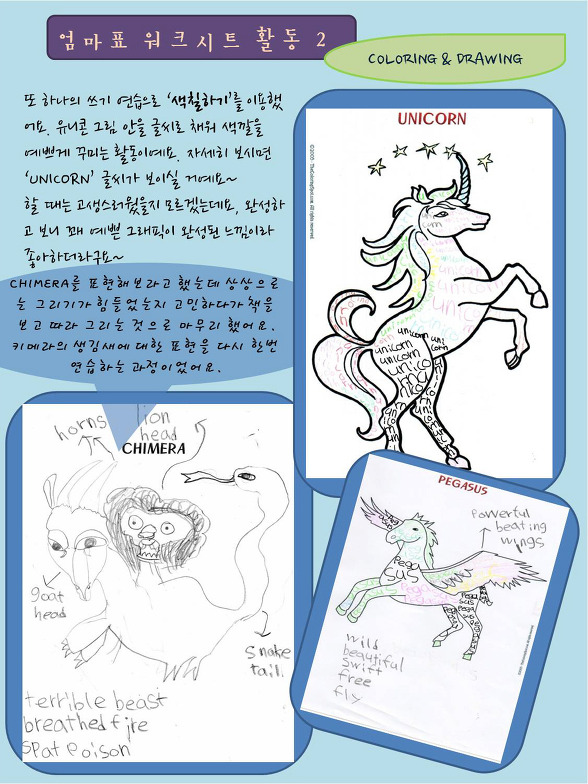 엄마표 워크시트 활동 2
COLORING & DRAWING
또 하나의 쓰기 연습으로 '색칠하기'를 이용했
어요. 유니콘 그림 안을 글씨로 채워 색깔을
예쁘게 꾸미는 활동이에요. 자세히 보시면
'UNICORN' 글씨가 보이실 거예요~
할 때는 고생스러웠을지 모르겠는데요, 완성하
고 보니 꽤 예쁜 그래픽이 완성된 느낌이라
좋아하더라구요~
CHIMERA를 표현해보라고 했는데 상상으로
는 그리기가 힘들었는지 고민하다가 책을
보고 따라 그리는 것으로 마무리 했어요.
키메라의 생김새에 대한 표현을 다시 한번
연습하는 과정이었어요.
UNICORN
unicorn
unicorn
unicorn uni
unicorn corn
unicorn
unico
horns
lion
head
CHIMERA
goat
head
snake
tail
terrible beast
breathed fire
spat poison
PEGASUS
powerful
beating
wings
Pega
sus
Pegasus
wild
beautiful
swift
free
fly